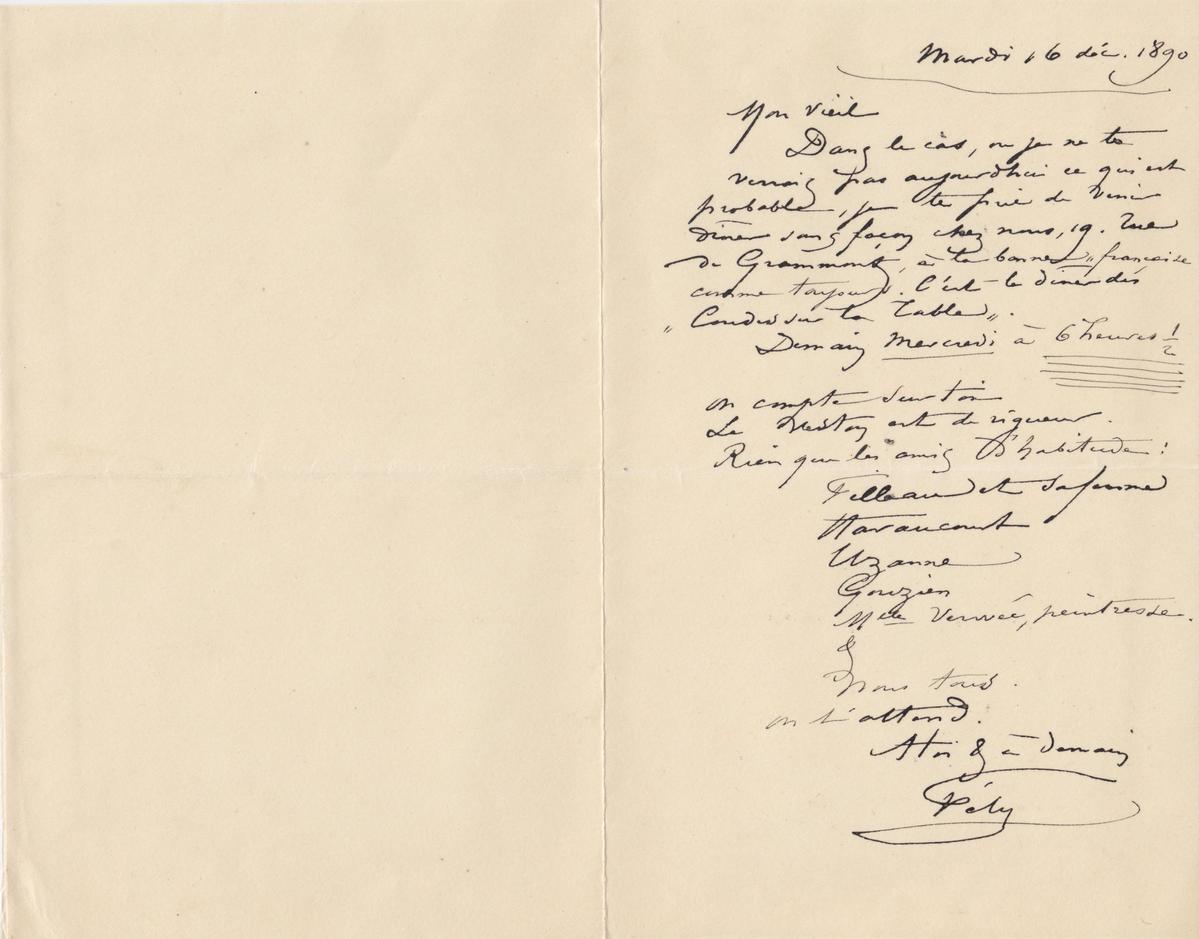 Mardi 16 déc. 1890
Mon vieil
Dans le cas, ou je ne te
verrais pas aujourd'hui ce qui est
probable, je te prie de venir
dîner sans façon chez nous, 19. rue
de Grammont, à la bonne „française
comme toujours. C'est le dîner des
„Coudes sur la Table„.
Demain Mercredi à 6 heures ½
on compte sur toi
Le veston est de rigueur.
Rien que les amis d'habitude :
Filleau et sa femme
Haraucourt
Uzanne
Gouzien
Melle Vervée, peintresse.
&
nous tous.
on t'attend.
A toi & à demain
Fély